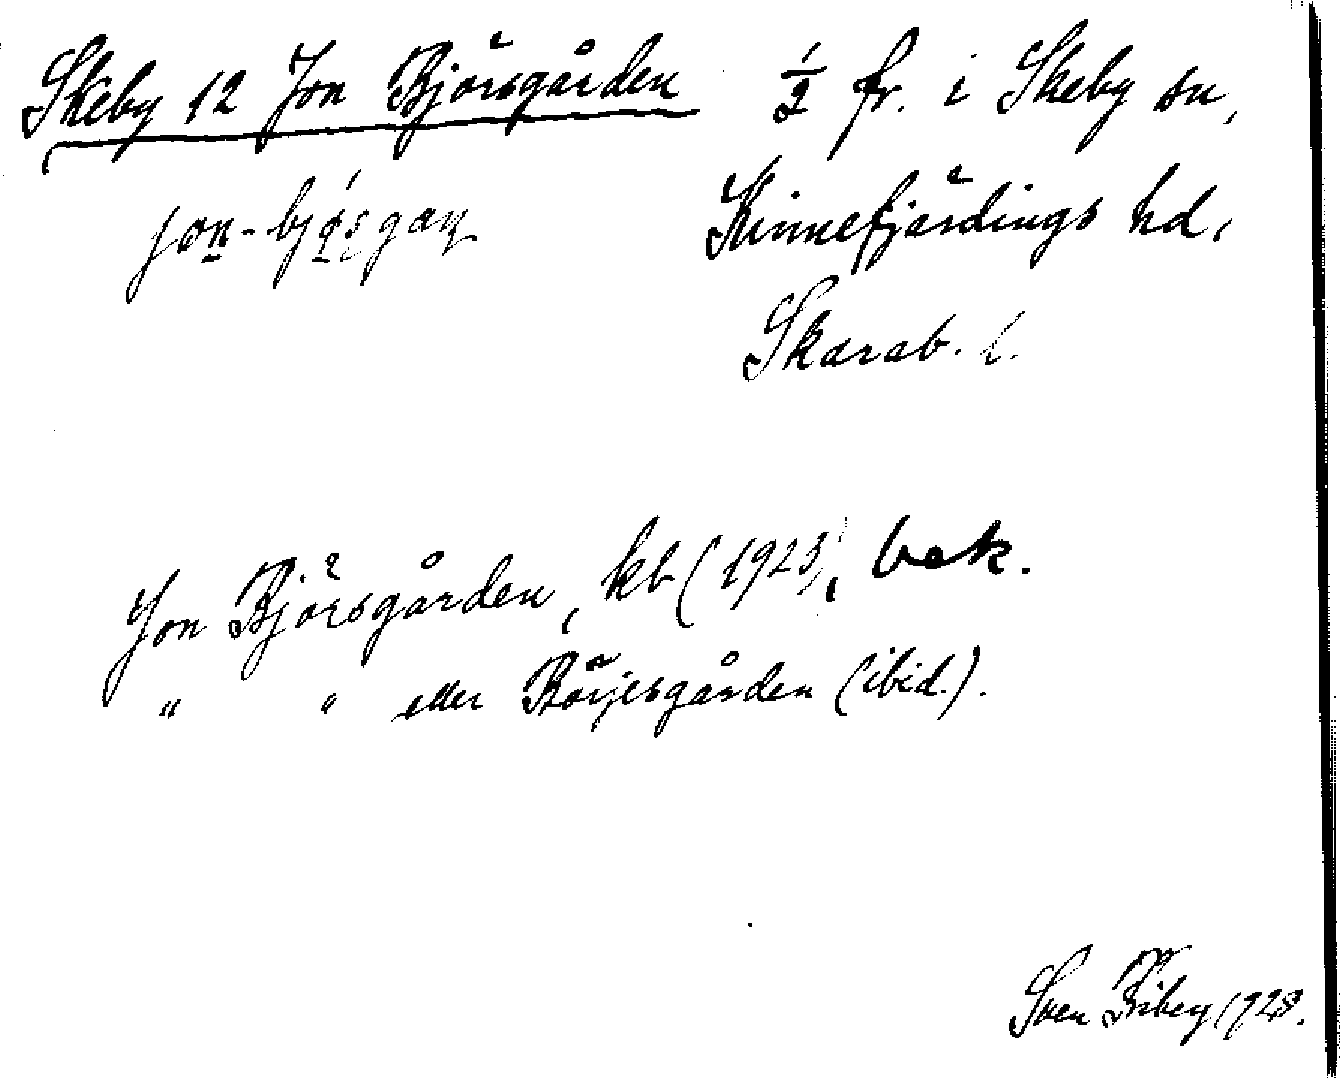 Skeby 12 Jon Björsgården ½ fr. i Skeby sn,
Kinnefjärdings hd,
Skarab. l.
Jon Björsgården, kb (1923), bek.
" " eller Börjesgården (ibid.).
Sven Friberg 1928.